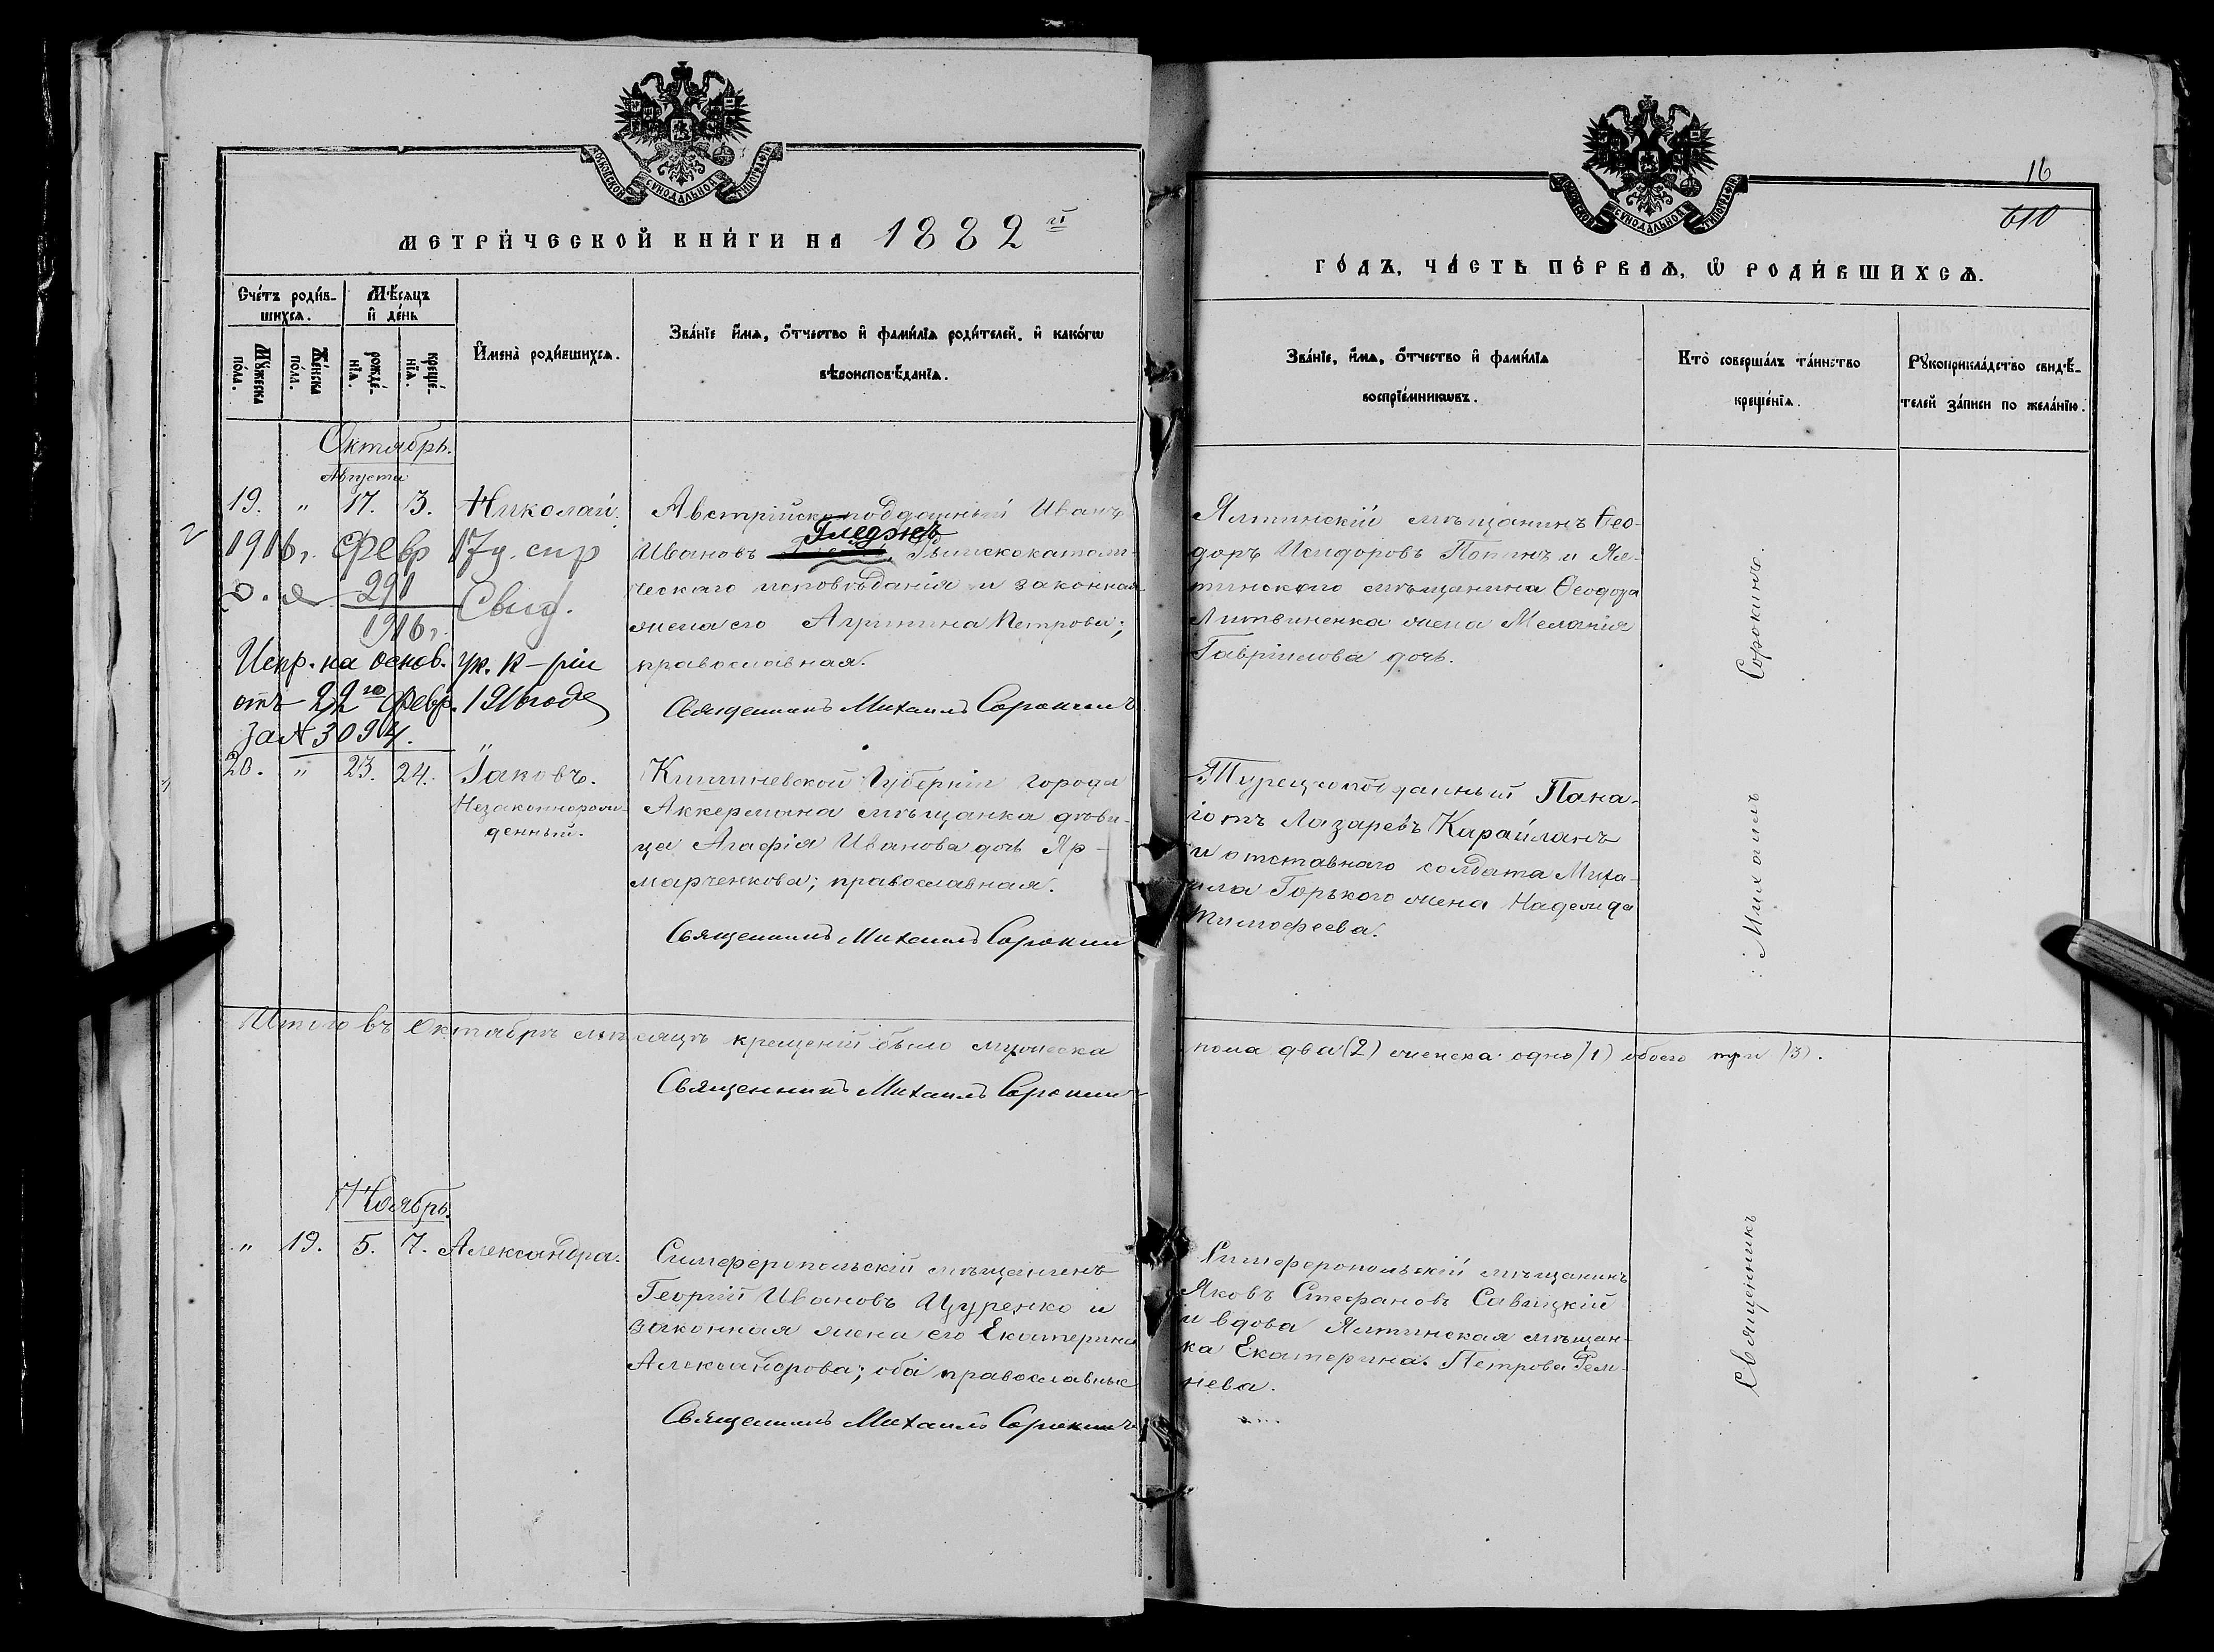 МОСКОВСКОЙ СѴНОДАЛЬНОЙ ТИПОГРАФІИ
МЕТРИ́ЧЕСКОЙ КНИ́ГИ НА 1882 й
Сче́тъ роди́в-
шихсѧ.
Мѣ́сѧцъ
и҆ де́нь
Мꙋ́жеска
по́ла.
Же́нска
по́ла.
рожде́-
нїѧ.
креще́-
нїѧ.
И҆мена̀ роди́вшихсѧ.
Зва́нїе и҆́мѧ, ѻ҆́тчество и҆ фамы́лїѧ роди́телей, и҆ како́гѡ
вѣроисповѣ́данїѧ.
Октябрь.
Августа
19. " 17. 3. Николай.
Австрійско подданный Иванъ
Гледжеъ
Ивановъ Римскокатоли-
ческаго исповѣданія и законная
жена его Агрипина Петрова;
православная.
Священникъ Михаилъ Сорокинъ
1916 г. Февр 17 д. спр
291
1916 г.
Свид.
Испр. на основ. ук. К-ріи
отъ 22го Февр. 1916 года
за № 3094.
20. " 23. 24. Іаковъ.
Незаконнорож-
денный.
Кишиневской Губерніи города
Аккермана мѣщанка дѣви-
ца Агафія Иванова дочь Яр-
марченкова; православная.
Священникъ Михаилъ Сорокинъ
Итого въ Октябрѣ мѣсяцѣ крещеній было мужеска
Священникъ Михаилъ Сорокинъ
Ноябрь.
" 19. 5. 7. Александра.
Симферопольскій мѣщанинъ
Георгій Ивановъ Цуренко и
законная жена его Екатерина
Александрова; оба православные
Священникъ Михаилъ Сорокинъ
16
610
МОСКОВСКОЙ СѴНОДАЛЬНОЙ ТИПОГРАФІИ
ГО́ДЪ, ЧА́СТЬ ПЕ́РВАѦ, Ѡ҆ РОДИ́ВШИХСѦ.
Зва́нїе, и҆́мѧ, ѻ҆́тчество и҆ фамы́лїѧ
воспрїе́мникѡвъ.
Кто̀ соверша́лъ та́инство
креще́нїѧ.
Рꙋкоприкла́дство свидѣ́-
телей за́писи по жела́нїю.
Ялтинскій мѣщанинъ Ѳео-
доръ Исидоровъ Попинъ и Ял-
тинскаго мѣщанина Ѳеодора
Литвиненка жена Меланія
Гавріилова дочь.
Турецкоподданный Пана-
іотъ Лазаревъ Карайланъ
и отставнаго солдата Миха-
ила Горькаго жена Надежда
Тимофеева.
пола два (2) женска одно (1) обоего три (3).
Симферопольскій мѣщанинъ
Яковъ Стефановъ Савицкій
и вдова Ялтинская мѣщан-
ка Екатерина Петрова Рем-
нева.
Священникъ Михаилъ Сорокинъ.